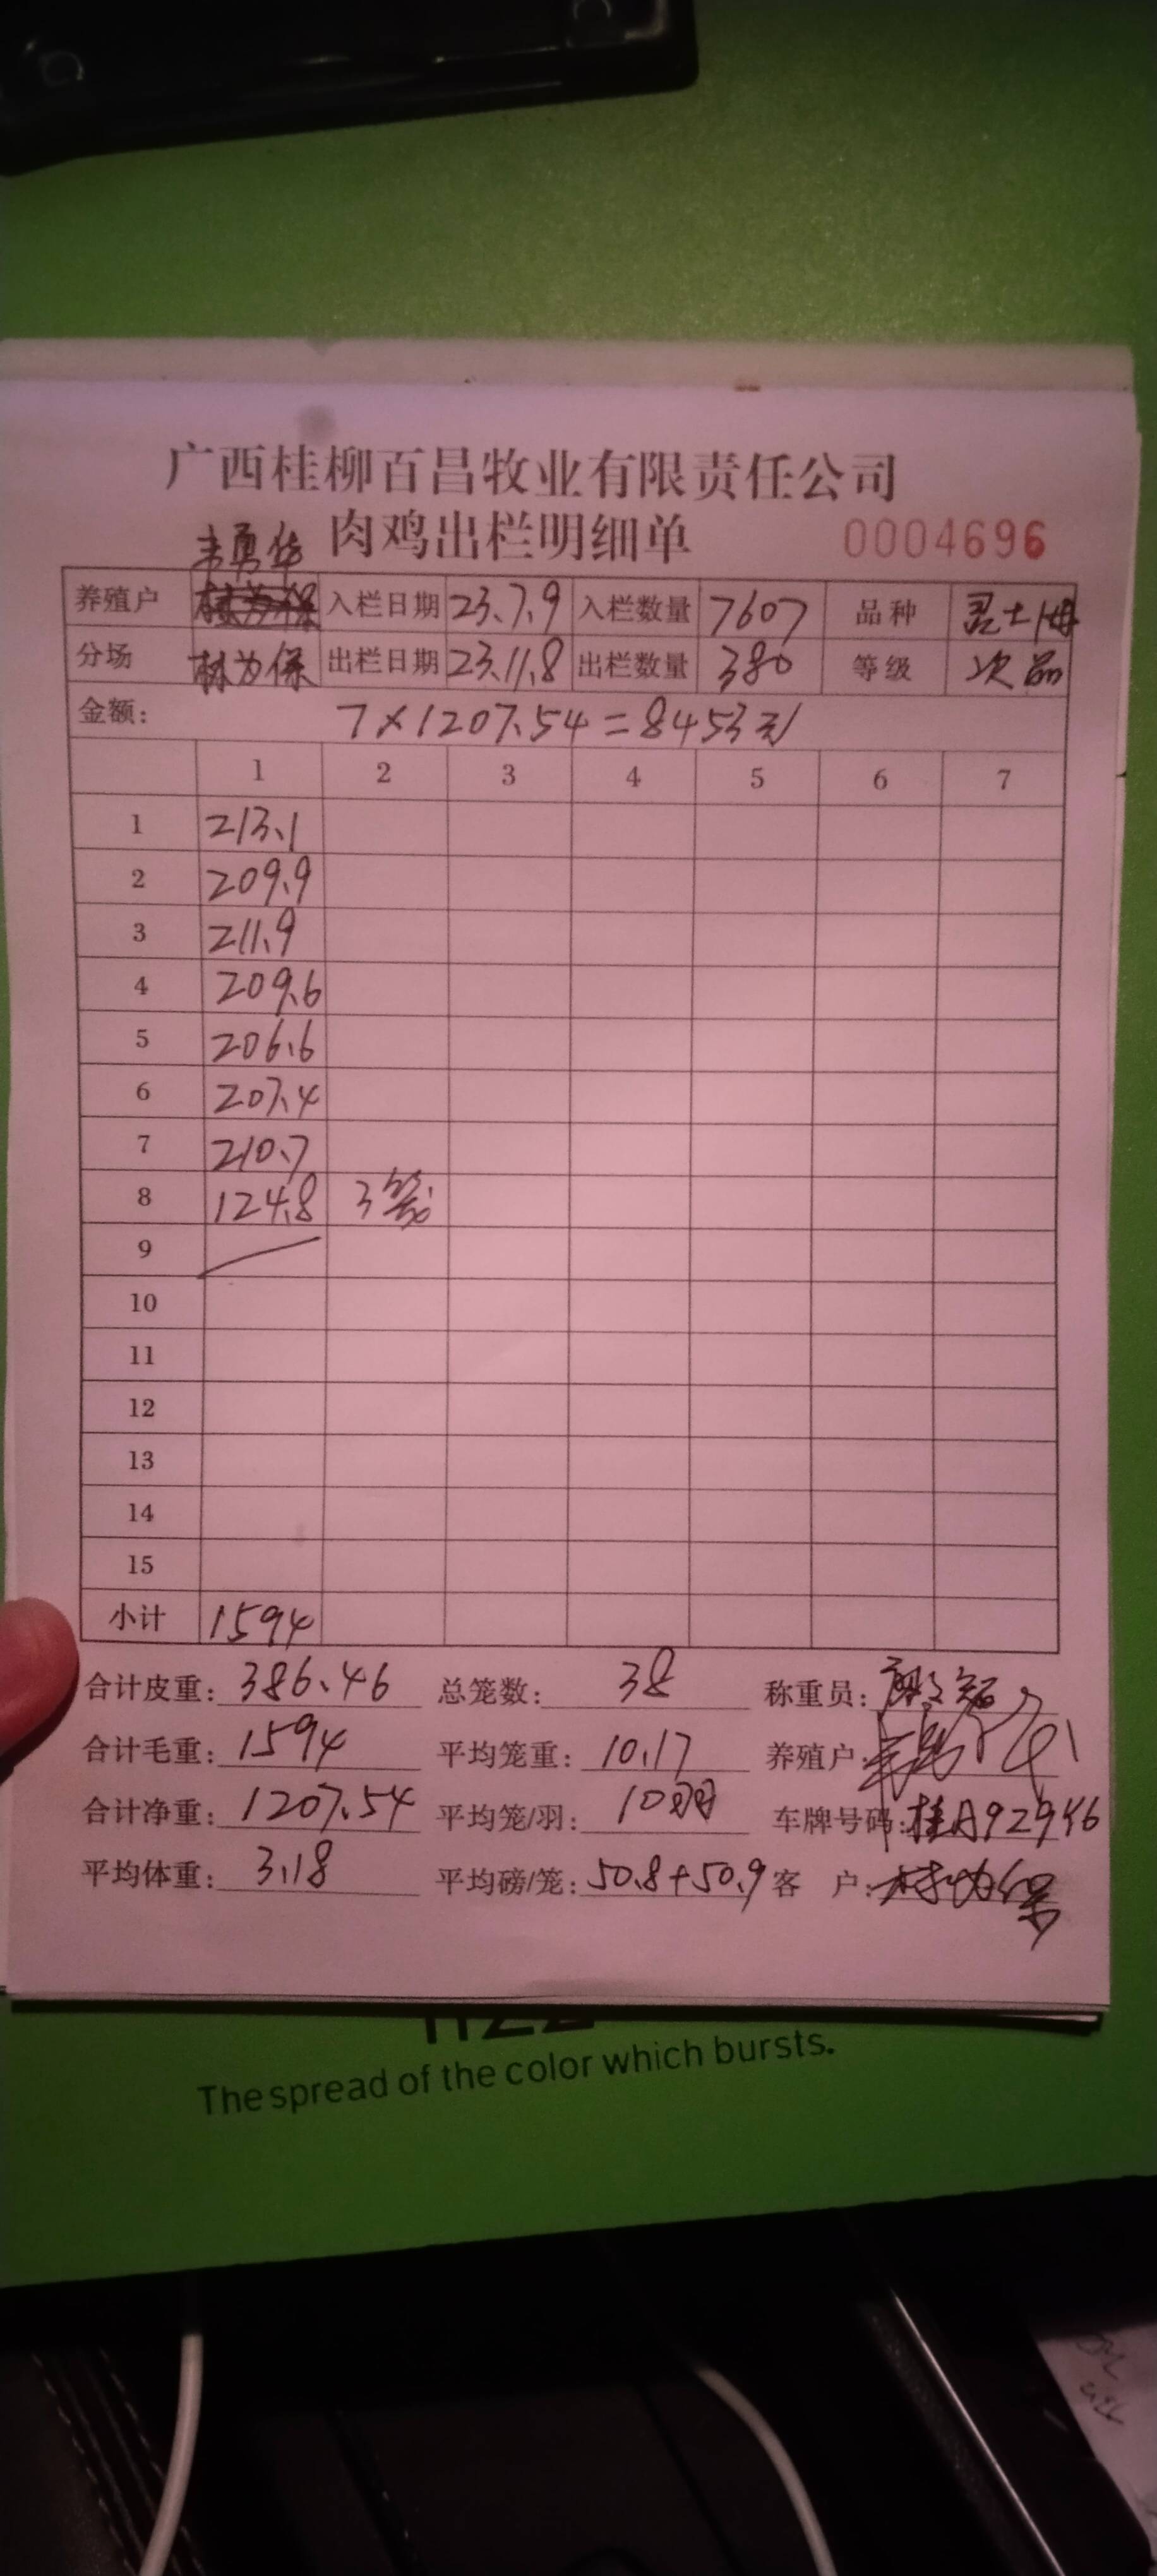 广西桂柳百昌牧业有限责任公司
肉鸡出栏明细单 0004696
韦勇华
养殖户 入栏日期 23.7.9 入栏数量 7607 品种 灵土母
分场 林为保 出栏日期 23.11.8 出栏数量 380 等级 次品
金额: 7×1207.54=8453元
1 2 3 4 5 6 7
1 213.1
2 209.9
3 211.9
4 209.6
5 206.6
6 207.4
7 210.7
8 124.8 3笼
9
10
11
12
13
14
15
小计 1594
合计皮重: 386.46 总笼数: 38 称重员:
合计毛重: 1594 平均笼重: 10.17 养殖户:
合计净重: 1207.54 平均笼/羽: 10羽 车牌号码: 桂A92946
平均体重: 3.18 平均磅/笼: 50.8+50.9 客 户: 林为保
The spread of the color which bursts.